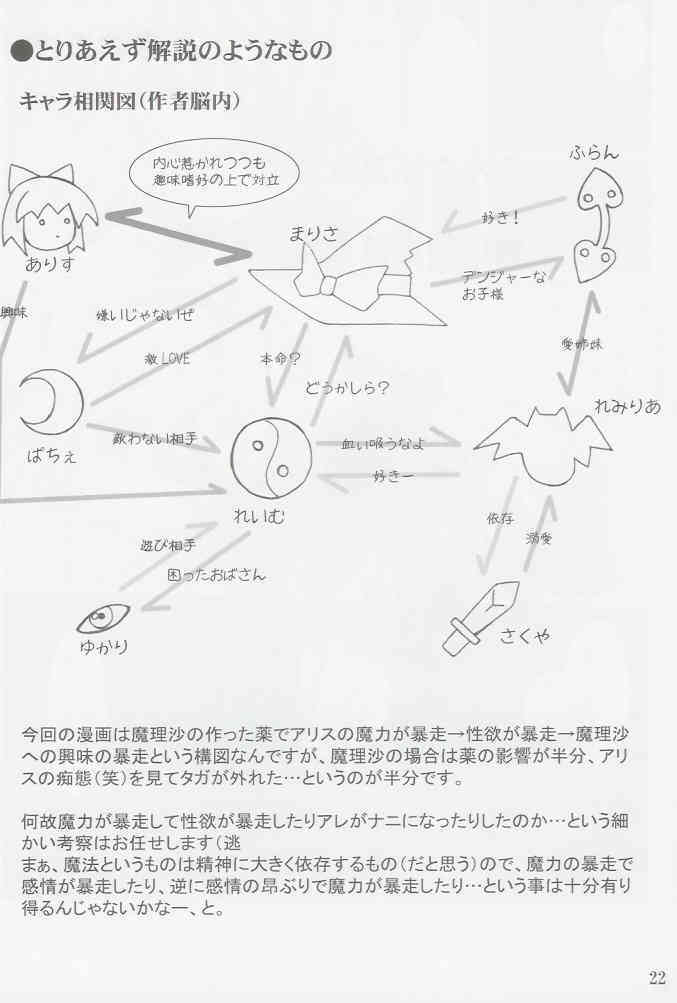 ●とりあえず解説のようなもの
キャラ相関図(作者脳内)
内心惹かれつつも
趣味嗜好の上で対立
ふらん
まりさ
好き!
ありす
デンジャーな
お子様
興味
嫌いじゃないぜ
敵LOVE
本命?
どうかしら?
愛姉妹
れみりあ
ぱちぇ
敵わない相手
血い吸うなよ
好きー
れいむ
依存
溺愛
遊び相手
困ったおばさん
ゆかり
さくや
今回の漫画は魔理沙の作った薬でアリスの魔力が暴走→性欲が暴走→魔理沙
への興味の暴走という構図なんですが、魔理沙の場合は薬の影響が半分、アリ
スの痴態(笑)を見てタガが外れた…というのが半分です。
何故魔力が暴走して性欲が暴走したりアレがナニになったりしたのか…という細
かい考察はお任せします(逃
まぁ、魔法というものは精神に大きく依存するもの(だと思う)ので、魔力の暴走で
感情が暴走したり、逆に感情の昂ぶりで魔力が暴走したり…という事は十分有り
得るんじゃないかなー、と。
22